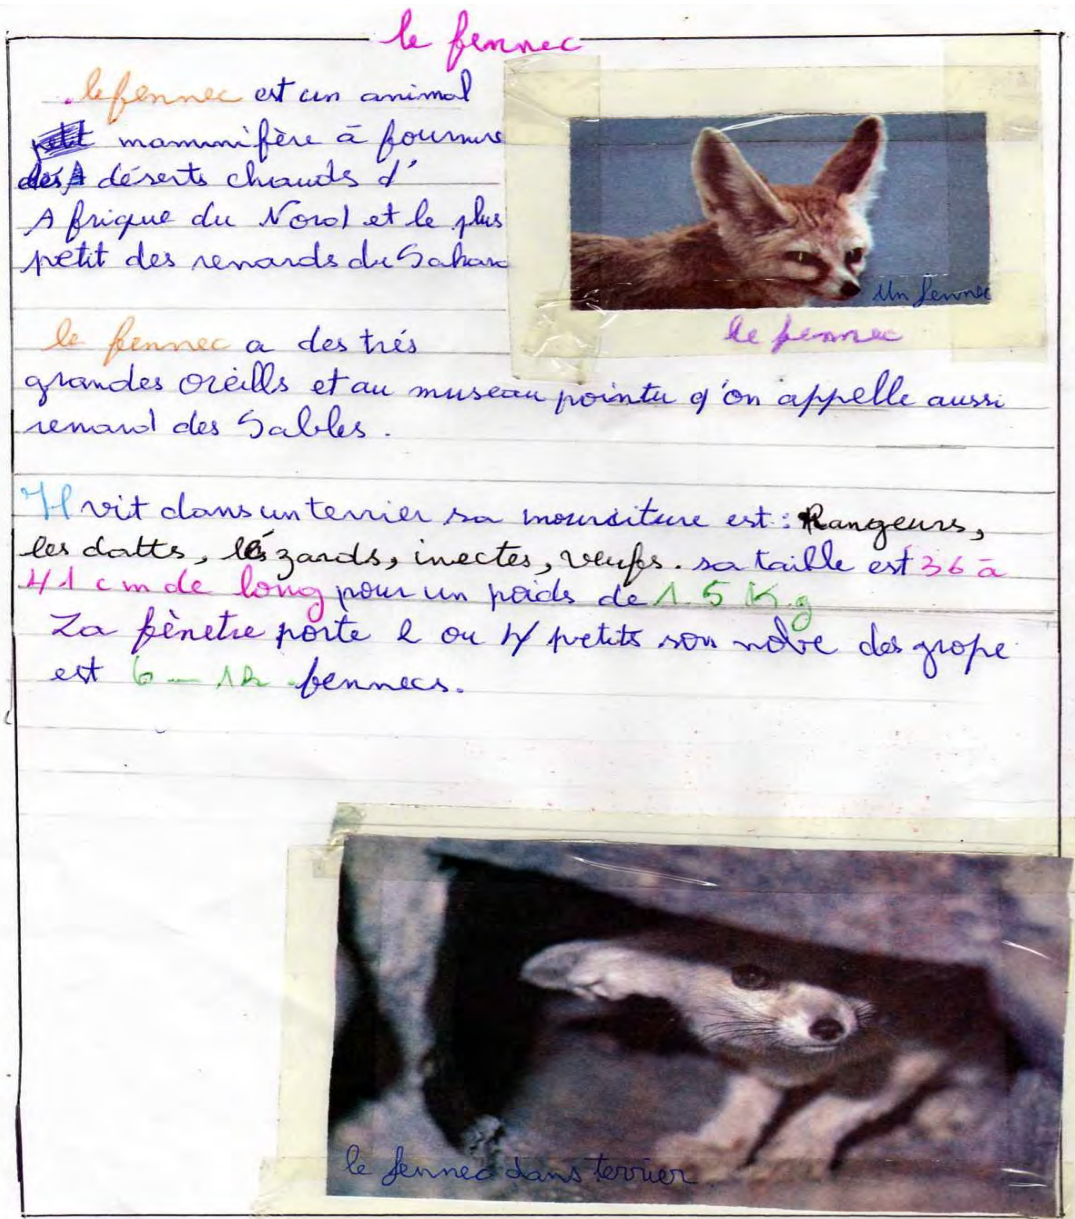 le fennec
. le fennec est un animal
mammifère à fourrure
des déserts chauds d'
Afrique du Nord et le plus
petit des renards du Sahara
Un fennec
le fennec
le fennec a des trés
grandes oreills et au museau pointu q'on appelle aussi
renard des Sables.
Il vit dans un terrier sa nourriture est : Rangeurs,
les datts, lézards, inectes, œufs. sa taille est 36 à
41 cm de long pour un poids de 1.5 Kg
La fènetre porte 2 ou 4 petits son nobre des grope
est 6 - 12 fennecs.
le fennec dans terrier